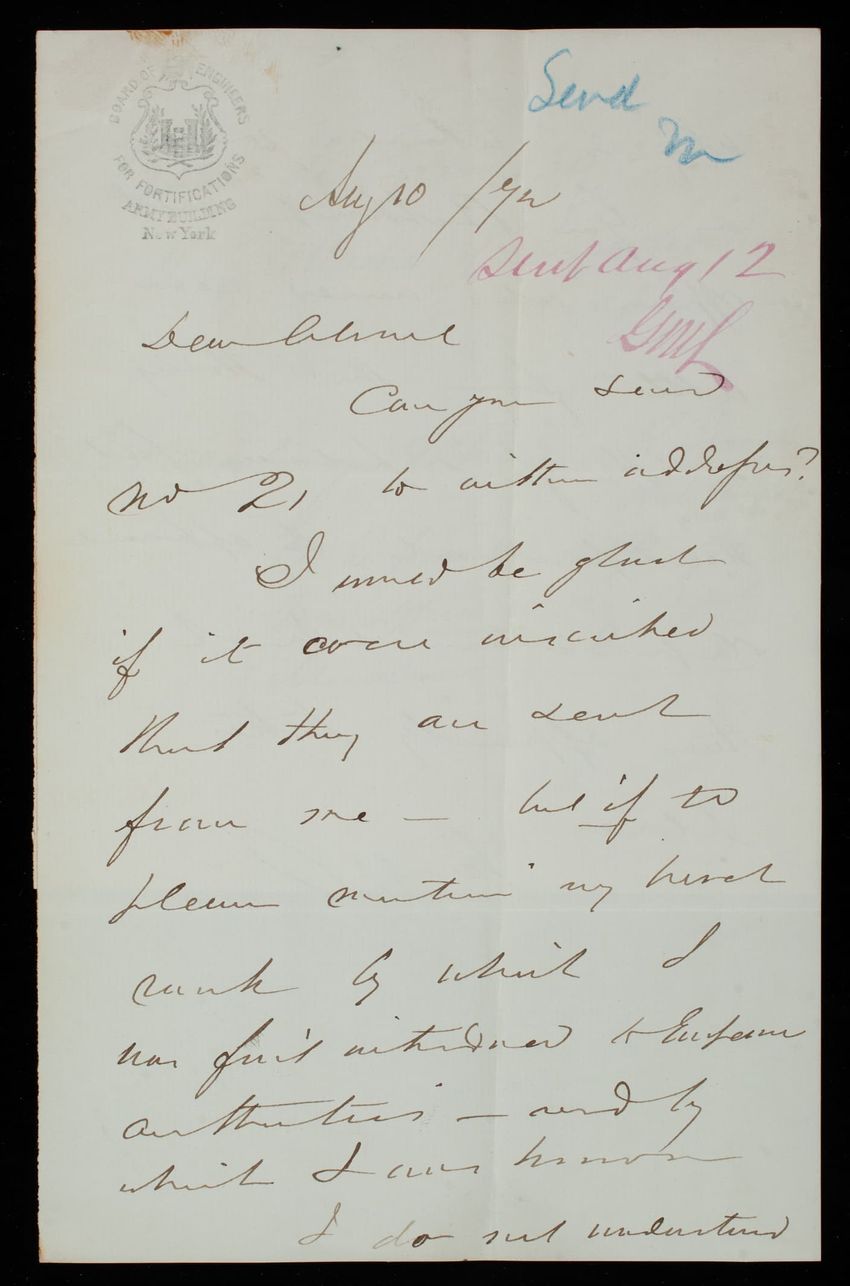 BOARD OF ENGINEERS
FOR FORTIFICATIONS
ARMY BUILDING
New York
Send
Aug 10 /72
Sent Aug 12
Dear Colonel
Can you send
No 21 to within address?
I would be glad
if it were inscribed
that they are sent
from me — but if so
please mention my brevet
rank by which I
was first introduced to European
authorities — and by
which I am known
I do not understand